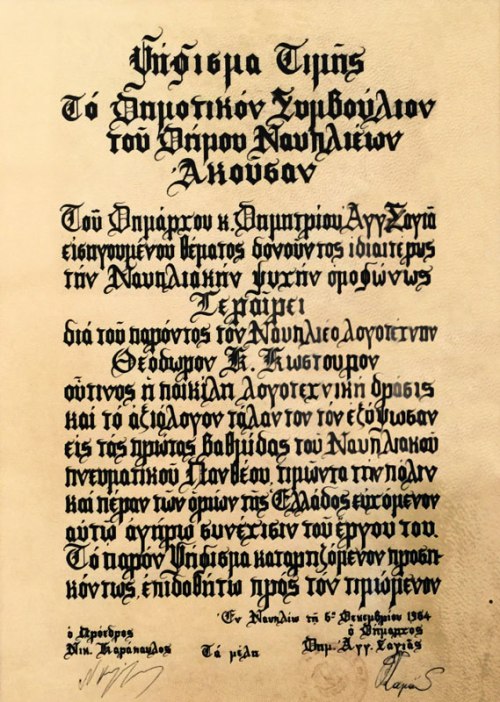 Ψήφισμα Τιμῆς
Τό Δημοτικόν Συμβούλιον
τοῦ Δήμου Ναυπλιέων
Ἀκοῦσαν
Τοῦ Δημάρχου κ. Δημητρίου Ἀγγ. Σαγιᾶ
εἰσηγουμένου θέματος δονοῦντος ἰδιαιτέρως
τήν Ναυπλιακήν ψυχήν ὁμοφώνως
Γεραίρει
διά τοῦ παρόντος τόν Ναυπλιέα λογοτέχνην
Θεόδωρον Κ. Κωστούρον
οὗτινος ἡ ποικίλη λογοτεχνική δρᾶσις
καί τό ἀξιόλογον τάλαντον τόν ἐξύψωσαν
εἰς τάς πρώτας βαθμίδας τοῦ Ναυπλιακοῦ
πνευματικοῦ Πανθέου, τιμῶντα τήν πόλιν
καί πέραν τῶν ὁρίων τῆς Ἑλλάδος εὐχόμενον
αὐτῷ ἀγήρω συνέχισιν τοῦ ἔργου του.
Τό παρόν Ψήφισμα καταρτιζόμενον προση-
κόντως, ἐπιδοθήτω πρός τόν τιμώμενον
Ἐν Ναυπλίῳ τῇ 6ῃ Δεκεμβρίου 1964
ὁ Πρόεδρος ὁ Δήμαρχος
Νικ. Καράπαυλος Τά μέλη Δημ. Ἀγγ. Σαγιᾶς